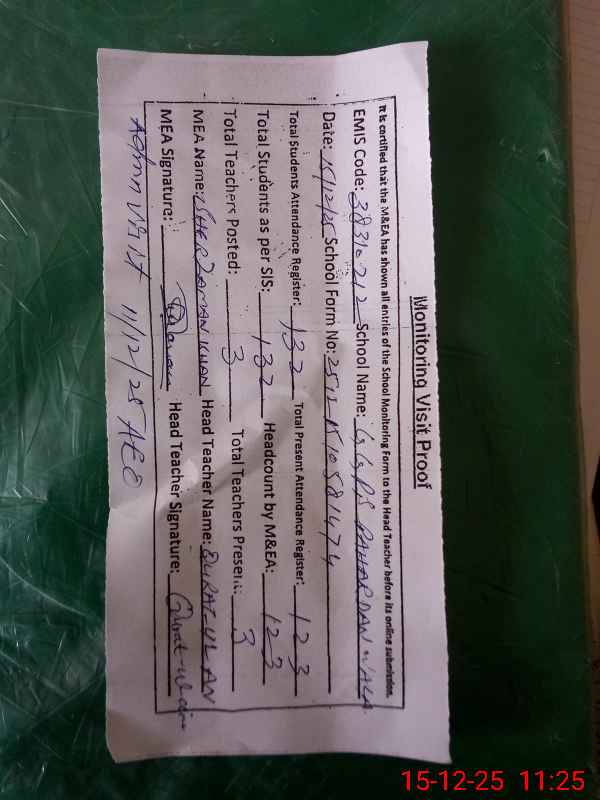 Monitoring Visit Proof
It is certified that the M&EA has shown all entries of the School Monitoring Form to the Head Teacher before its online submission.
EMIS Code: 38310212 School Name: GGPS PAHARDAN WALA
Date: 15/12/25 School Form No: 2512-1510581474
Total Students Attendance Register: 132 Total Present Attendance Register: 123
Total Students as per SIS: 132 Headcount by M&EA: 123
Total Teachers Posted: 3 Total Teachers Present: 3
MEA Name: SHER ZAMAN KHAN Head Teacher Name: QURAT-UL-AN
MEA Signature: Head Teacher Signature: Qurat-ul-ain
Admn Visit 11/12/25 AEO
15-12-25 11:25